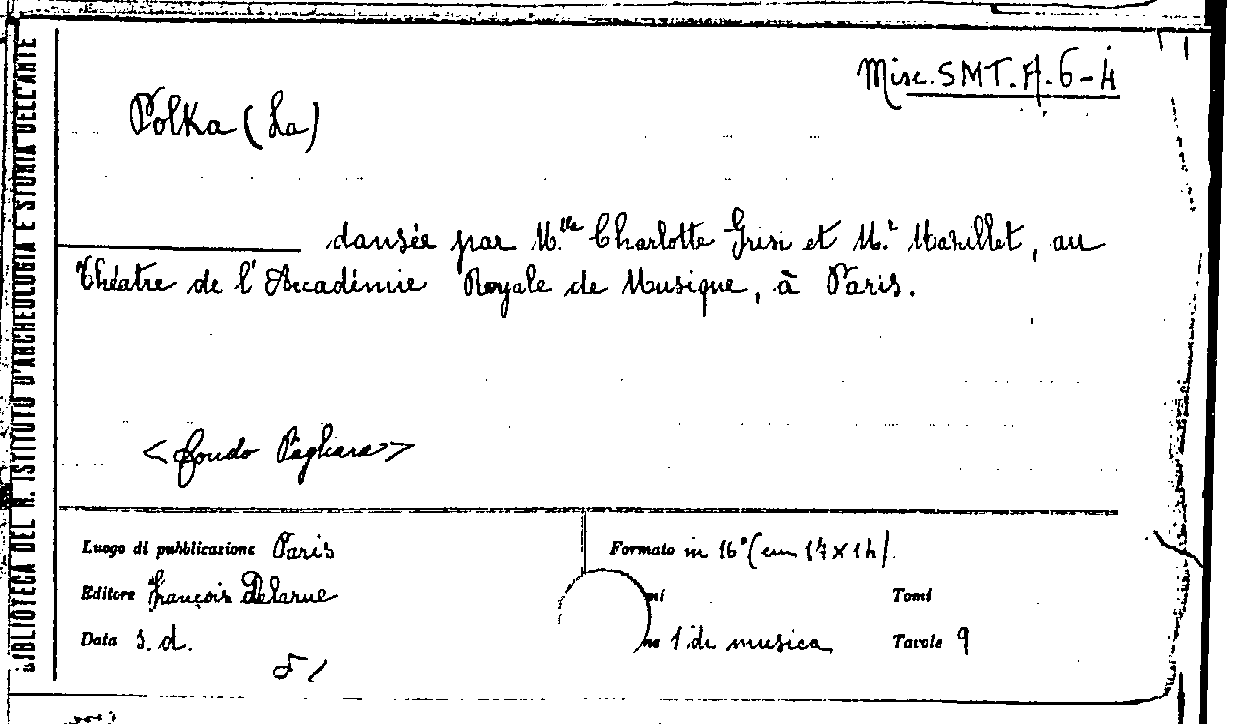 BIBLIOTECA DEL R. ISTITUTO D'ARCHEOLOGIA E STORIA DELL'ARTE
Misc. SMT. A. 6-4
Polka (La)
dansée par M.lle Charlotte Grisi et M.r Mazillet, au
Théatre de l'Accadémie Royale de Musique, à Paris.
<fondo Pagliara>
Luogo di pubblicazione Paris
Formato in 16° (cm 17 x 14).
Editore François Delarue
mi Tomi
Data s.d.
ne 1 di musica Tavole 9